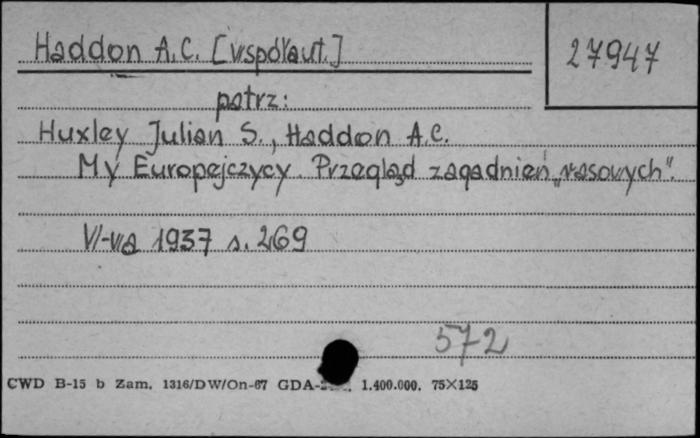 Haddon A.C. [współaut.]
27947
patrz:
Huxley Julian S., Haddon A.C.
My Europejczycy. Przegląd zagadnień „rasowych".
W-wa 1937 s. 269
572
CWD B-15 b Zam. 1316/DW/On-67 GDA- 1.400.000. 75×125